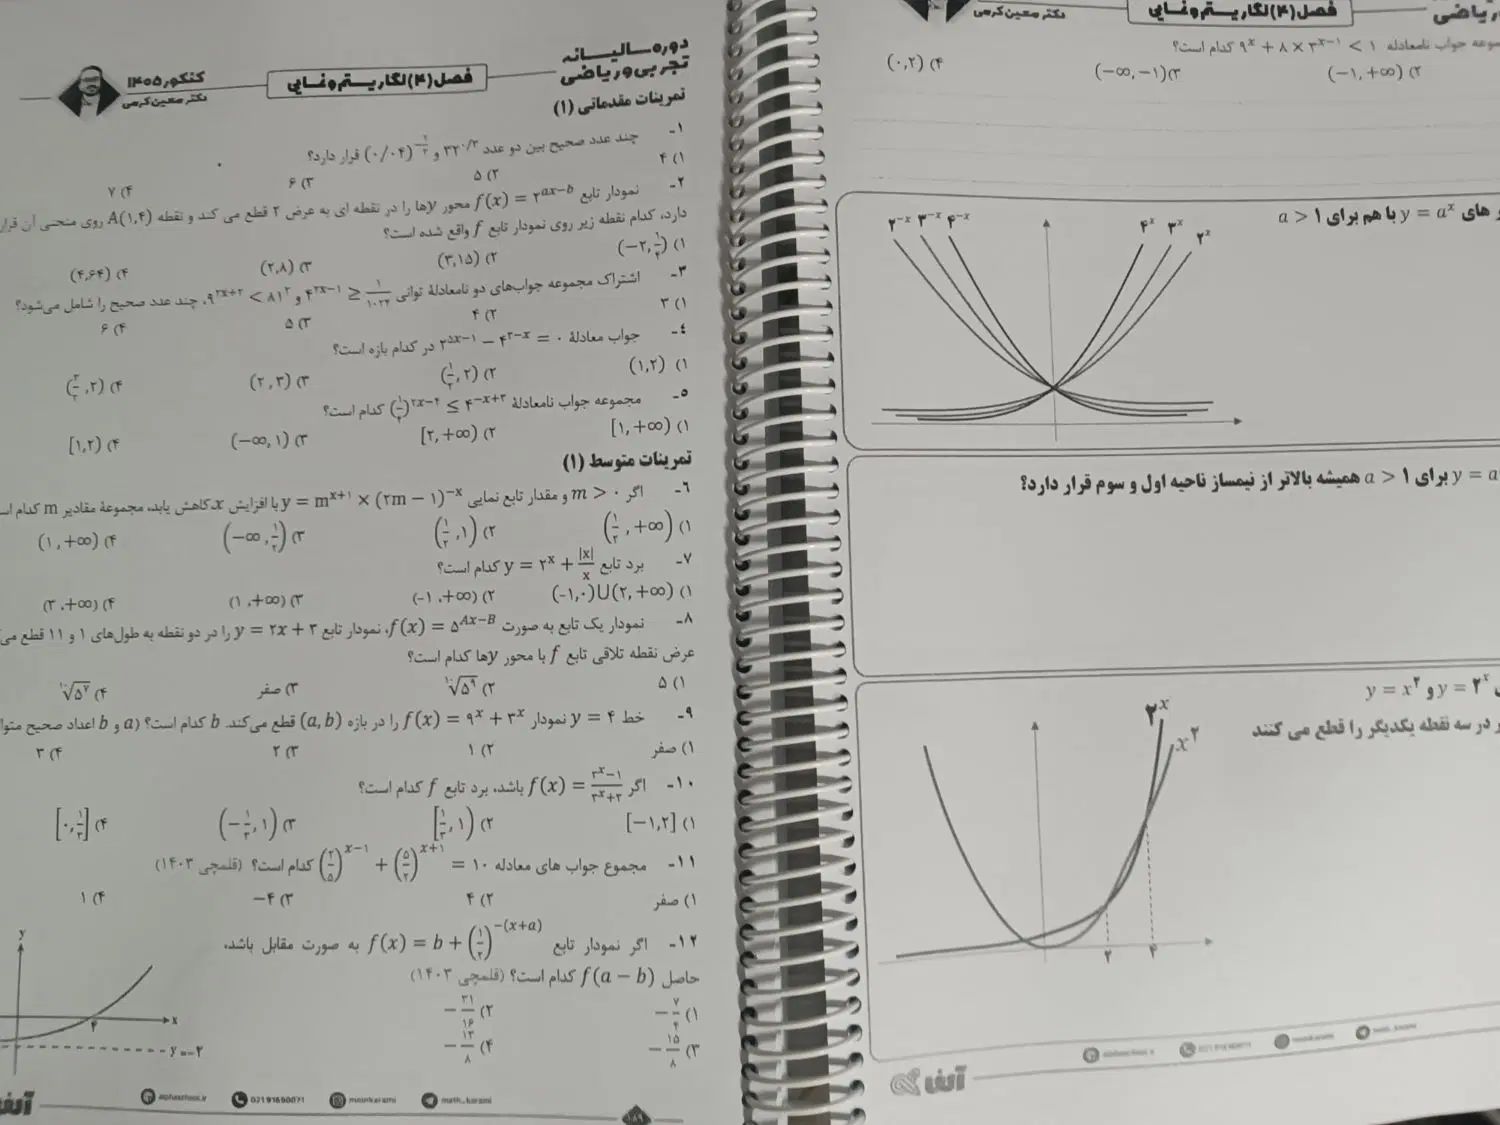 دوره سالیانه
تجربی و ریاضی
فصل (۴) لگاریتم و نمایی
کنکور ۱۴۰۵
دکتر معین کرمی
تمرینات مقدماتی (۱)
۱- چند عدد صحیح بین دو عدد ۳۲^۰/۳ و (۰/۰۴)^-۱/۲ قرار دارد؟
۱) ۴ ۲) ۵ ۳) ۶ ۴) ۷
۲- نمودار تابع f(x) = ۲^ax-b محور yها را در نقطه ای به عرض ۲ قطع می کند و نقطه A(۱,۴) روی منحنی آن قرار
دارد، کدام نقطه زیر روی نمودار تابع f واقع شده است؟
۱) (-۲, ۱/۲) ۲) (۳,۱۵) ۳) (۲,۸) ۴) (۴,۶۴)
۳- اشتراک مجموعه جواب‌های دو نامعادلهٔ توانی ۴^۲x-۱ ≥ ۱/۱۰۲۴ و ۹^۲x+۲ < ۸۱^۲، چند عدد صحیح را شامل می‌شود؟
۱) ۳ ۲) ۴ ۳) ۵ ۴) ۶
۴- جواب معادلهٔ ۲^۵x-۱ - ۴^۳-x = ۰ در کدام بازه است؟
۱) (۱,۲) ۲) (۱/۲, ۲) ۳) (۲,۳) ۴) (۳/۲, ۲)
۵- مجموعه جواب نامعادلهٔ (۱/۲)^۲x-۴ ≤ ۴^-x+۳ کدام است؟
۱) [۱,+∞) ۲) [۲,+∞) ۳) (-∞,۱) ۴) [۱,۲)
تمرینات متوسط (۱)
۶- اگر m > ۰ و مقدار تابع نمایی y = m^x+۱ × (۲m - ۱)^-x با افزایش x کاهش یابد، مجموعهٔ مقادیر m کدام
۱) (۱/۲, +∞) ۲) (۱/۲, ۱) ۳) (-∞, ۱/۲) ۴) (۱, +∞)
۷- برد تابع y = ۲^x + |x|/x کدام است؟
۱) (-۱,۰)∪(۲,+∞) ۲) (-۱,+∞) ۳) (۱,+∞) ۴) (۲,+∞)
۸- نمودار یک تابع به صورت f(x) = ۵^Ax-B، نمودار تابع y = ۲x + ۳ را در دو نقطه به طول‌های ۱ و ۱۱ قطع
عرض نقطه تلاقی تابع f با محور yها کدام است؟
۱) ۵ ۲) ¹⁰√۵^۹ ۳) صفر ۴) ¹⁰√۵^۷
۹- خط y = ۴ نمودار f(x) = ۹^x + ۳^x را در بازه (a, b) قطع می‌کند. b کدام است؟ (a و b اعداد صحیح
۱) صفر ۲) ۱ ۳) ۲ ۴) ۳
۱۰- اگر f(x) = ۳^x-۱/۳^x+۲ باشد، برد تابع f کدام است؟
۱) [-۱,۲] ۲) [۱/۲, ۱) ۳) (-۱/۲, ۱) ۴) [۰, ۱/۲]
۱۱- مجموع جواب های معادله (۲/۵)^x-۱ + (۵/۲)^x+۱ = ۱۰ کدام است؟ (قلمچی ۱۴۰۳)
۱) صفر ۲) ۴ ۳) -۴ ۴) ۱
۱۲- اگر نمودار تابع f(x) = b + (۱/۲)^-(x+a) به صورت مقابل باشد،
حاصل f(a - b) کدام است؟ (قلمچی ۱۴۰۳)
۱) -۷/۴ ۲) -۳۱/۱۶
۳) -۱۵/۸ ۴) -۱۳/۸
y
۴ x
y=-۲
alphaschool.ir 02191690071 moeinkarami math_karami
۱۸۹
فصل (۴) لگاریتم و نمایی
دکتر معین کرمی
ریاضی
جواب نامعادله ۹^x + ۸ × ۳^x-۱ < ۱ کدام است؟
۲) (-۱, +∞) ۳) (-∞, -۱) ۴) (۰,۲)
های y = a^x با هم برای a > ۱
۲^-x ۳^-x ۴^-x
۴^x ۳^x ۲^x
برای a > ۱ همیشه بالاتر از نیمساز ناحیه اول و سوم قرار دارد؟
y = ۲^x و y = x^۲
در سه نقطه یکدیگر را قطع می کنند
۲^x
x^۲
۲ ۴
alphaschool.ir moeinkarami math_karami